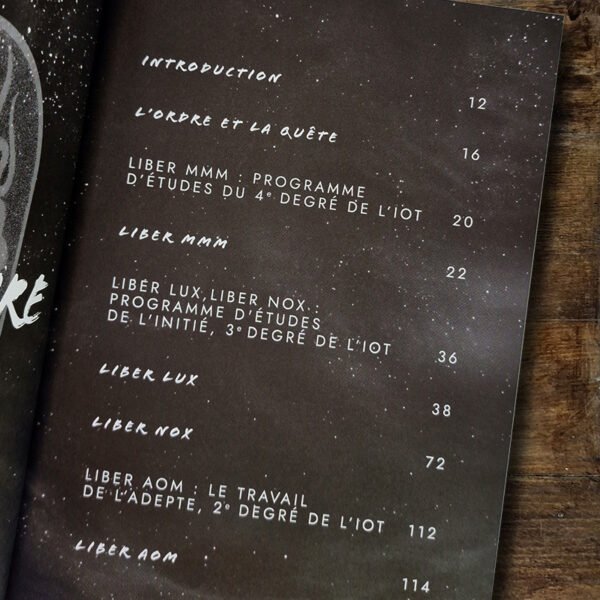 RE
INTRODUCTION 12
L'ORDRE ET LA QUÊTE 16
LIBER MMM : PROGRAMME
D'ÉTUDES DU 4e DEGRÉ DE L'IOT 20
LIBER MMM 22
LIBER LUX, LIBER NOX :
PROGRAMME D'ÉTUDES
DE L'INITIÉ, 3e DEGRÉ DE L'IOT 36
LIBER LUX 38
LIBER NOX 72
LIBER AOM : LE TRAVAIL
DE L'ADEPTE, 2e DEGRÉ DE L'IOT 112
LIBER AOM 114